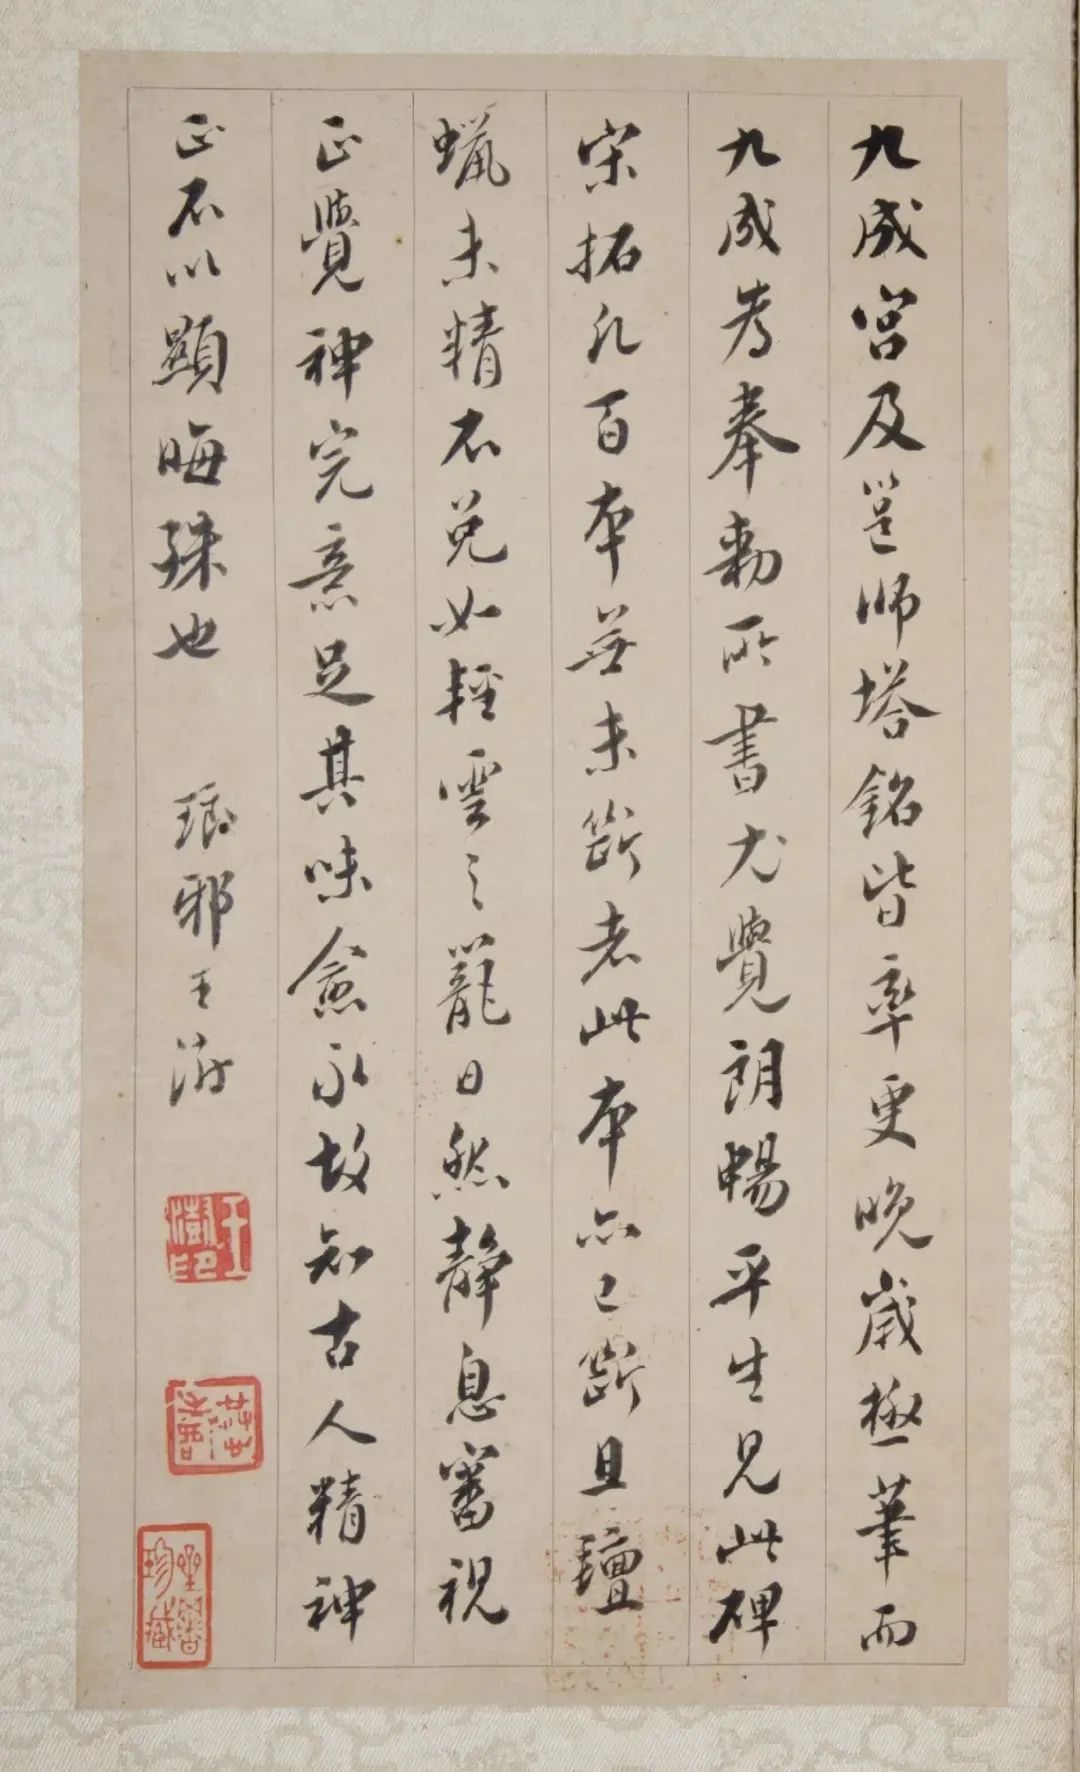 九成宮及邕師塔銘皆率更晚歲極筆而
九成為奉勅所書尤覺朗暢平生見此碑
宋拓凡百本無未斷者此本亦已斷且氊
蠟未精不免如輕雲之籠日然靜息審視
正覺神完意足其味愈永故知古人精神
正不以顯晦殊也
琅邪王澍
王澍印
珍藏